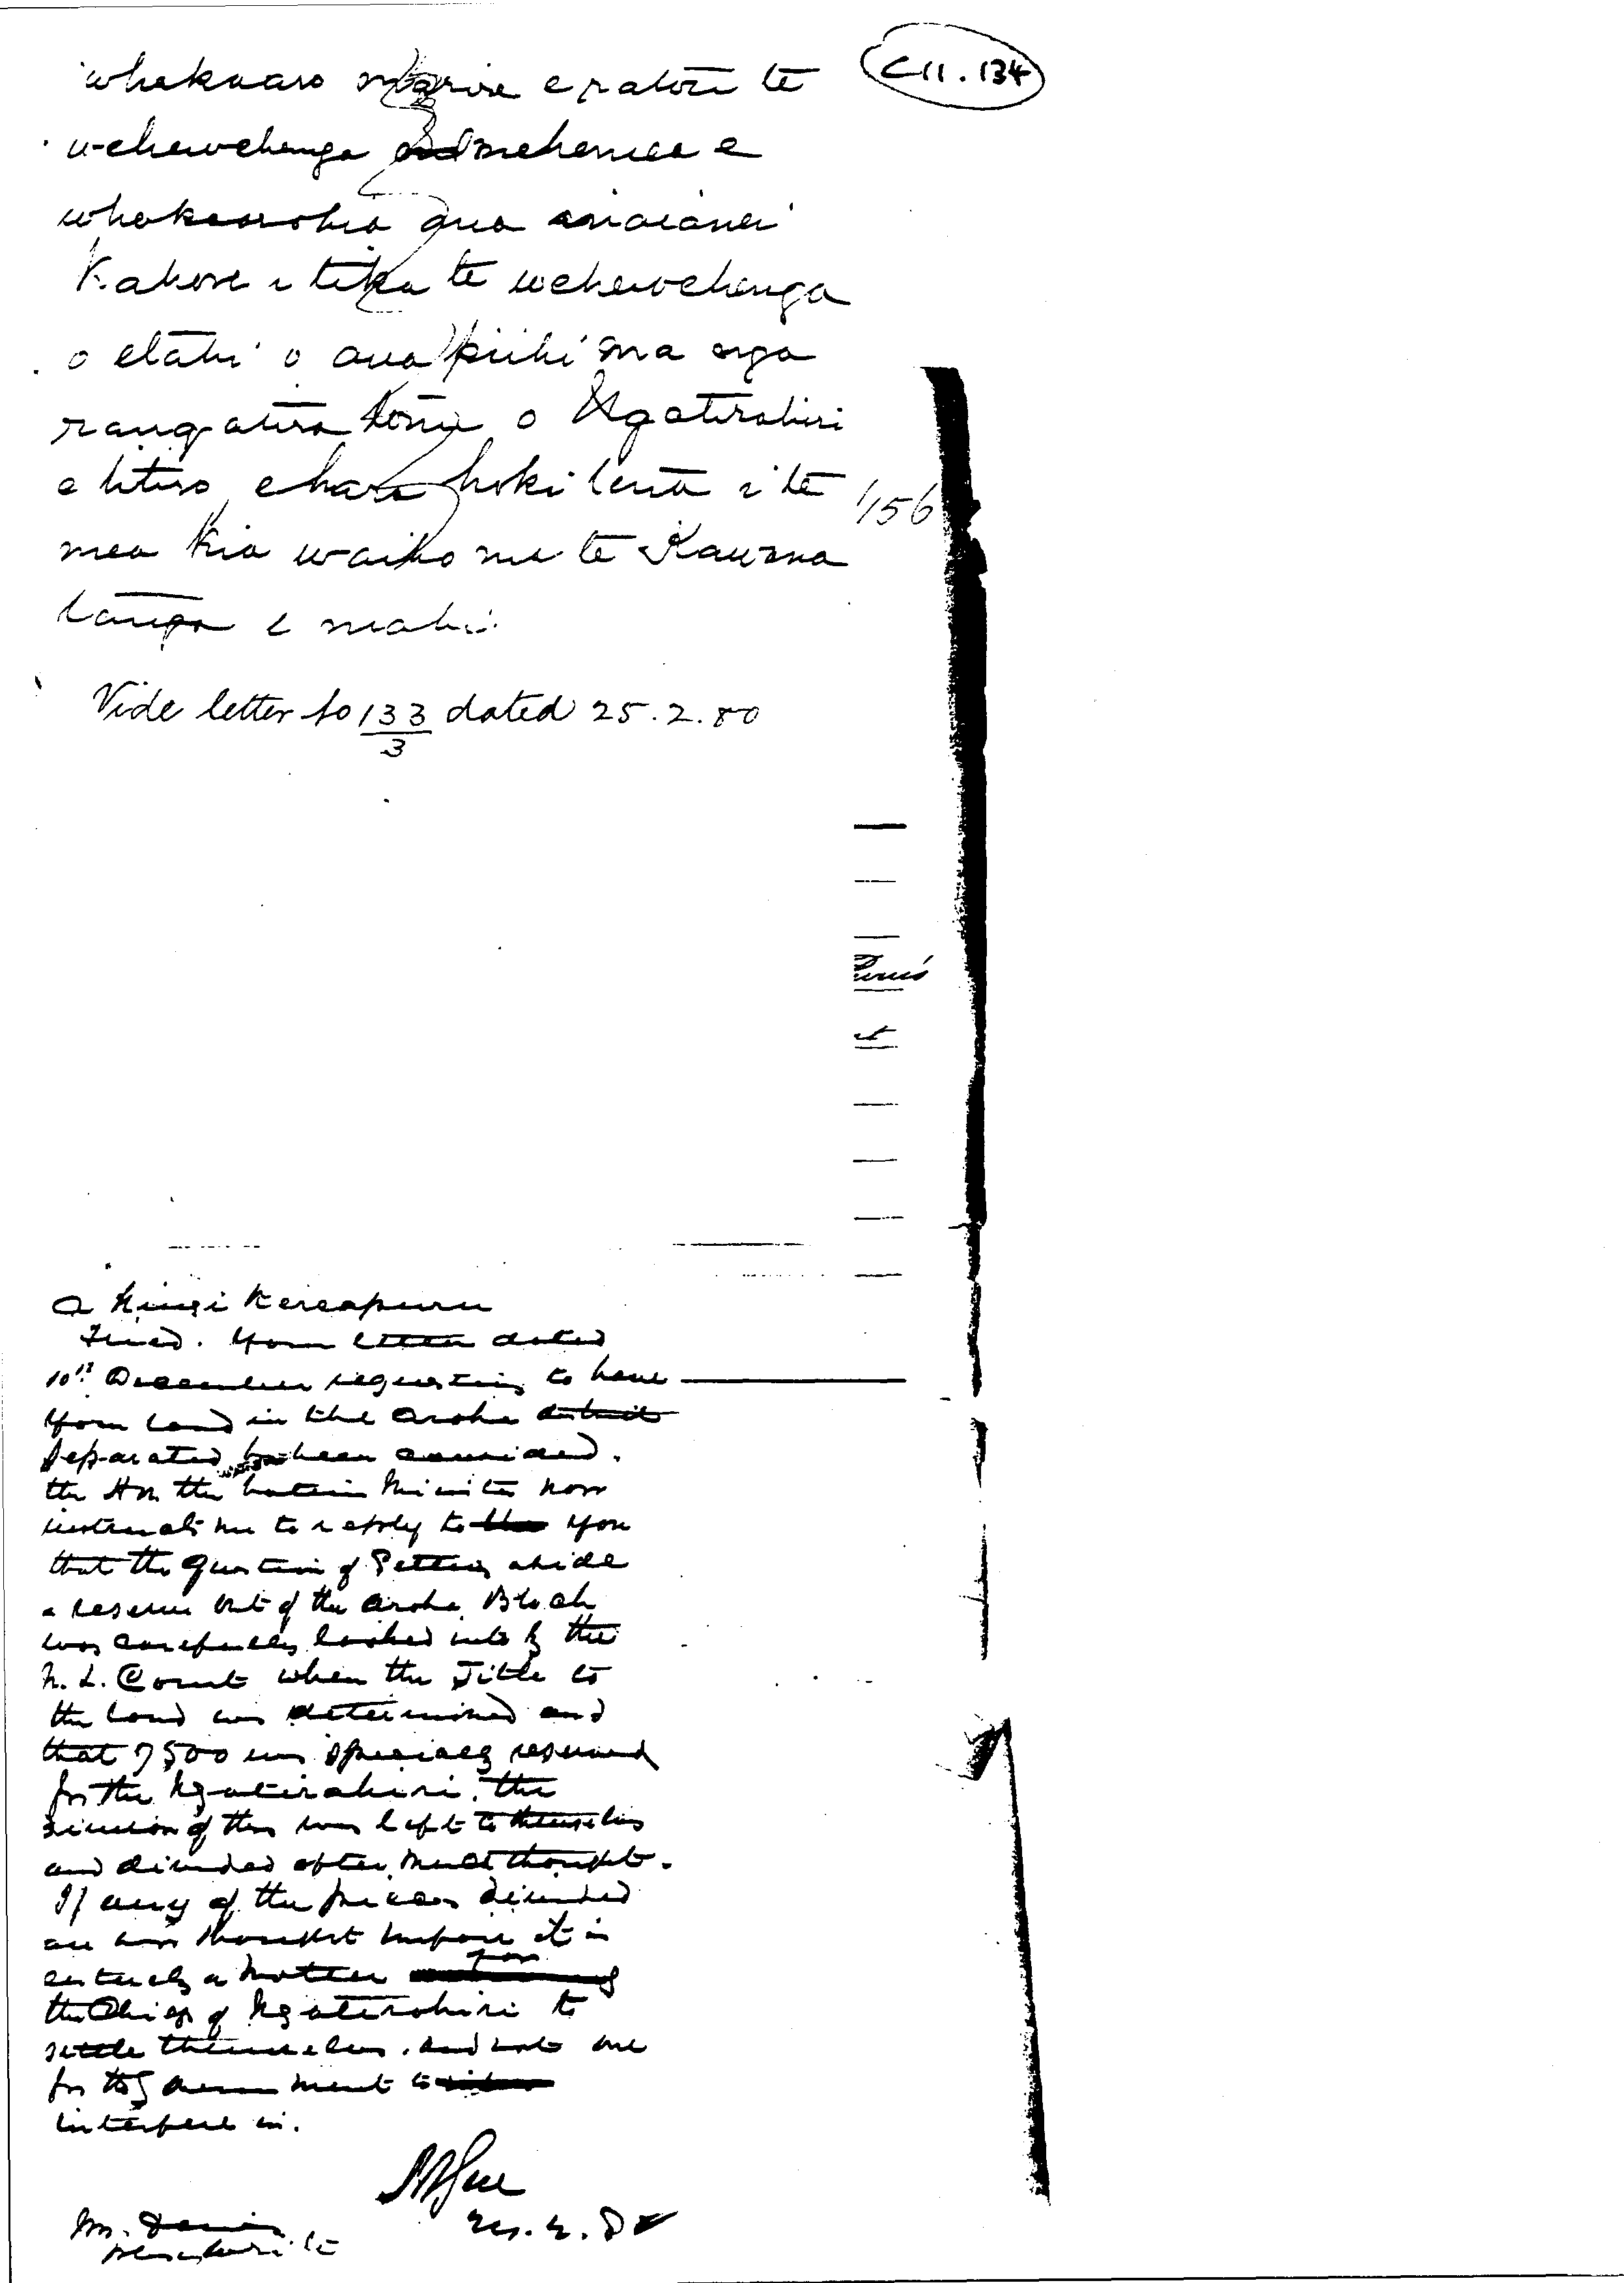 C11.134
whakaaro marire e ratou te
wehewehenga mehemea e
whakaarohia ana aianei
Kahore i tika te wehewehenga
o etahi o aua piihi ma nga
rangatira tonu o Ngatirahiri
e titiro, ehara hoki tena i te
mea kia waiho ma te Kawana
tanga e mahi.
1/156
Vide letter to 133/3 dated 25.2.80
Kingi Kereapuru
Friend. Your letter dated
10th December requesting to have
your land in the Aroha district
separated has been received.
the Hon the Native Minister now
instructs me to reply to you
that the question of setting aside
a reserve out of the Aroha Block
was carefully looked into by the
N. L. Court when the Title to
the land was determined and
that 7500 was specially reserved
for the Ngatirahiri. the
division of this was left to themselves
and divided after much thought.
If any of the pieces divided
are now thought it is
entirely a matter for
the Chiefs of Ngatirahiri to
settle themselves. and not one
for the Government to
interfere in.
Mr. Davies